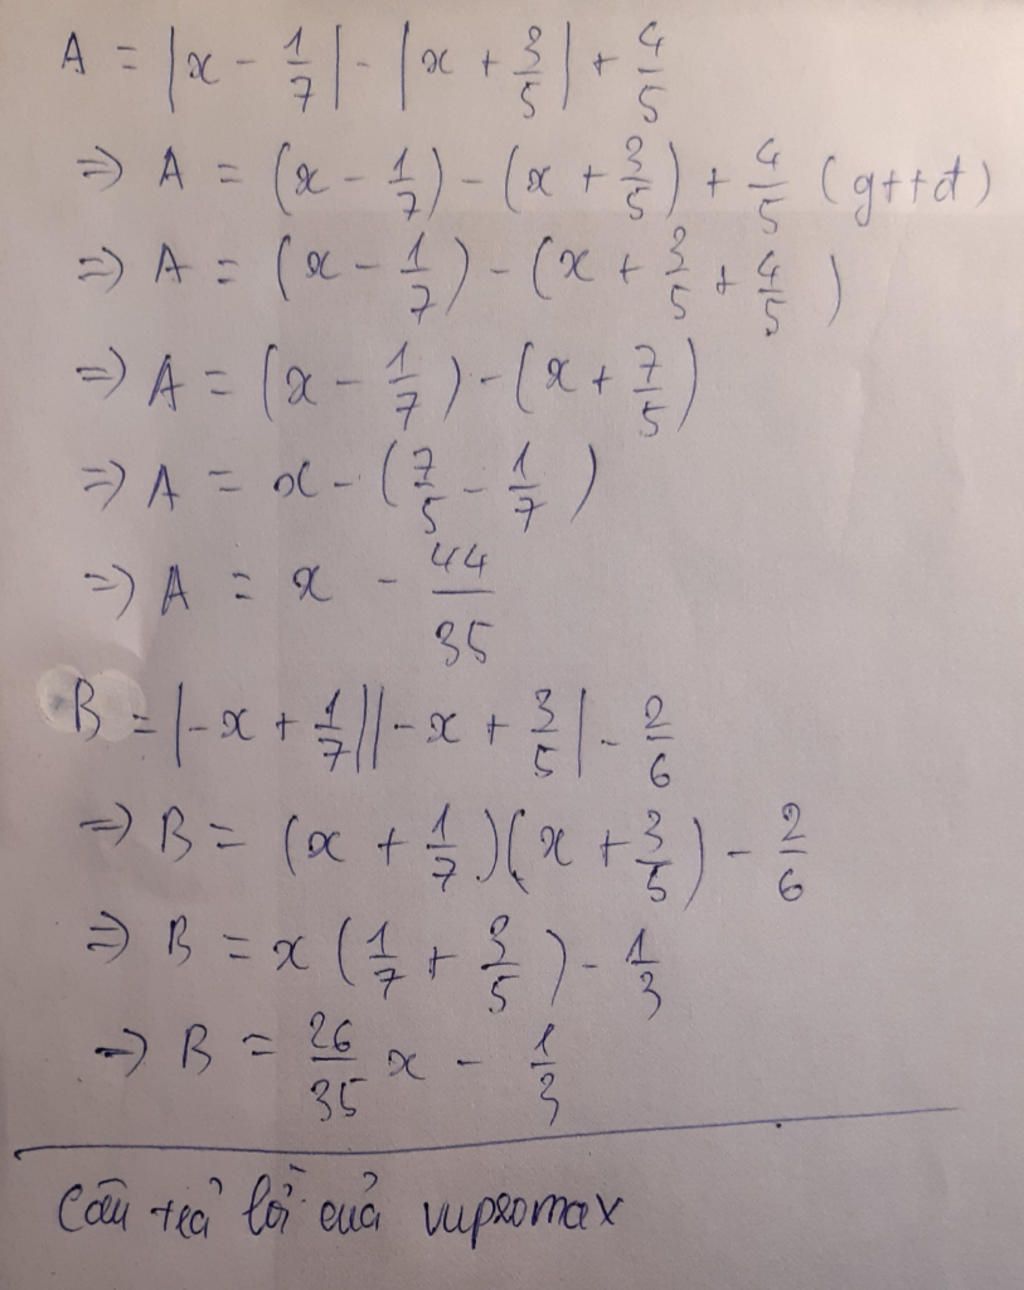 A = |x - 1/7| - |x + 3/5| + 4/5
=> A = (x - 1/7) - (x + 3/5) + 4/5 (gttđ)
=> A = (x - 1/7) - (x + 3/5 + 4/5)
=> A = (x - 1/7) - (x + 7/5)
=> A = x - (7/5 - 1/7)
=> A = x - 44/35
B = |-x + 1/7||-x + 3/5| - 2/6
=> B = (x + 1/7)(x + 3/5) - 2/6
=> B = x(1/7 + 3/5) - 1/3
=> B = 26/35 x - 1/3
Câu trả lời của vupromax